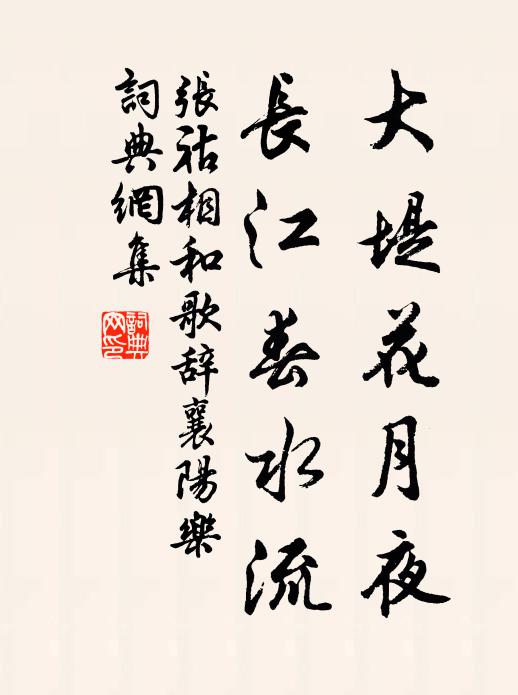 大堤花月夜
長江春水流
張祜相和歌辭襄陽樂
詞典網集
詞典網印